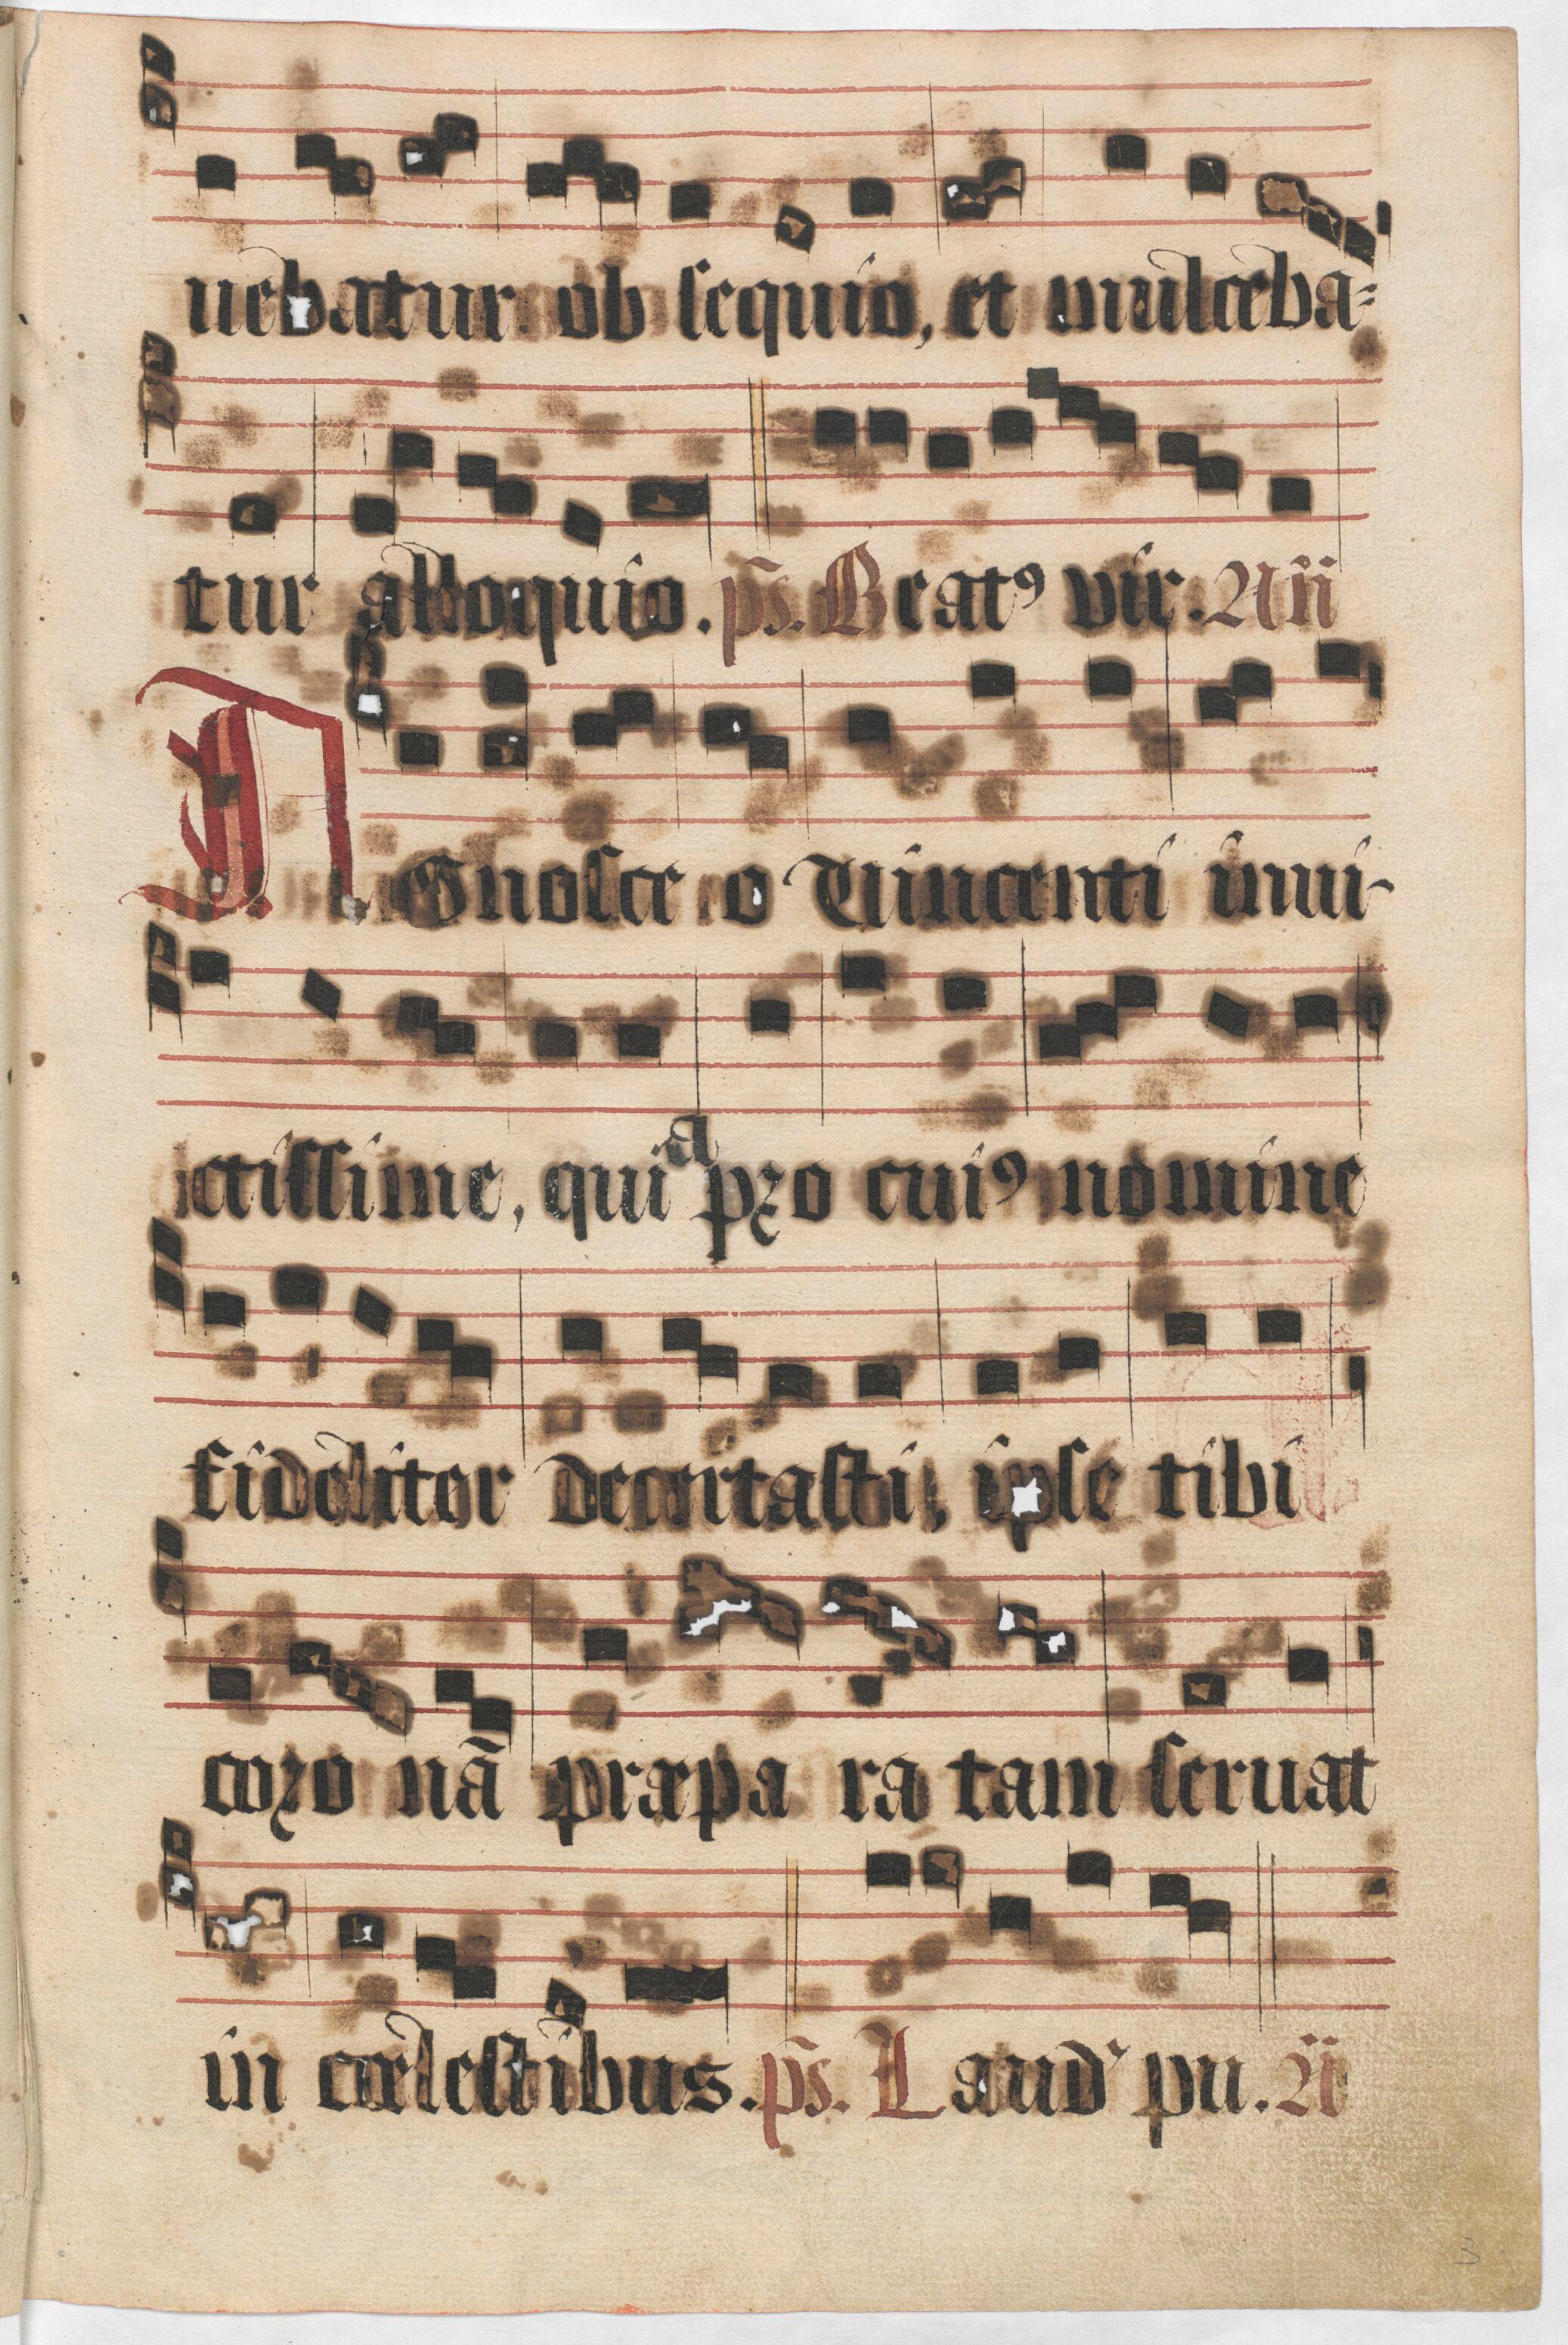 uebatur ob sequio, et mulceba=
tur alloquio. p̄s. Beatꝰ vir. Aii
AGnosce o Vincenti inui-
ctissime, quia pro cuiꝰ nomine
fideliter decertasti, ipse tibi
coro nā præpa ra tam seruat
in cœlestibus. p̄s. Laud pu. Aii
3